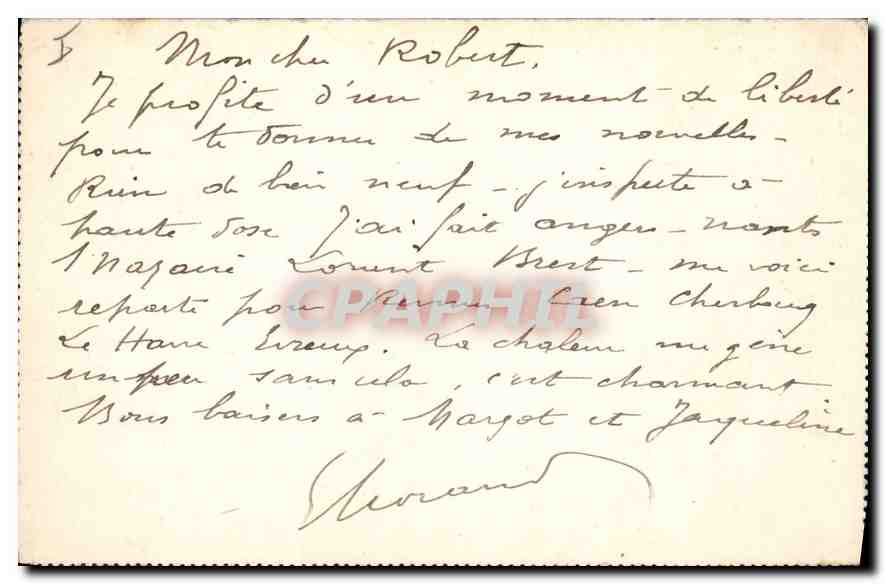 Mon cher Robert,
Je profite d'un moment de liberté
pour te donner de mes nouvelles -
Rien de bien neuf - j'inspecte à
haute dose J'ai fait angers - nantes
St Nazaire Lorient Brest - me voici
reparti pour Rennes Caen Cherbourg
Le Havre Evreux. La chaleur me gêne
un peu sans cela, c'est charmant
Bons baisers à Margot et Jacqueline
CPAPHIL